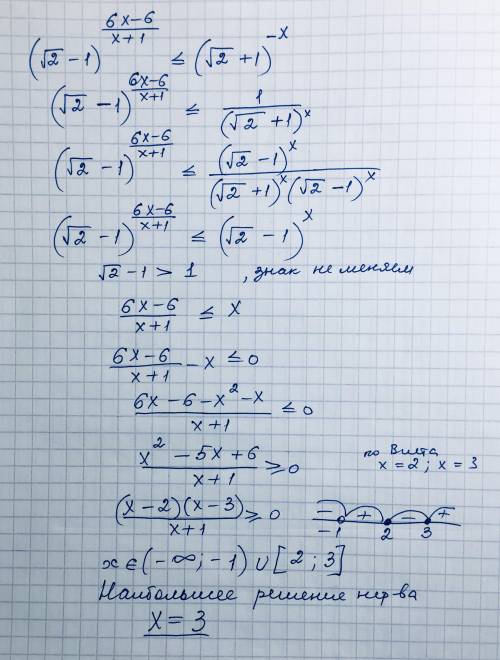 (√2 - 1)^((6x-6)/(x+1)) ≤ (√2 + 1)^(-x)
(√2 - 1)^((6x-6)/(x+1)) ≤ 1/(√2 + 1)^x
(√2 - 1)^((6x-6)/(x+1)) ≤ (√2 - 1)^x/((√2 + 1)^x (√2 - 1)^x)
(√2 - 1)^((6x-6)/(x+1)) ≤ (√2 - 1)^x
√2 - 1 > 1 , знак не меняем
(6x-6)/(x+1) ≤ x
(6x-6)/(x+1) - x ≤ 0
(6x - 6 - x² - x)/(x+1) ≤ 0
(x² - 5x + 6)/(x+1) ≥ 0
по Виета
x = 2 ; x = 3
((x-2)(x-3))/(x+1) ≥ 0
- + - +
-1 2 3
x ∈ (-∞; -1) ∪ [2 ; 3]
Наибольшее решение нерва
x = 3